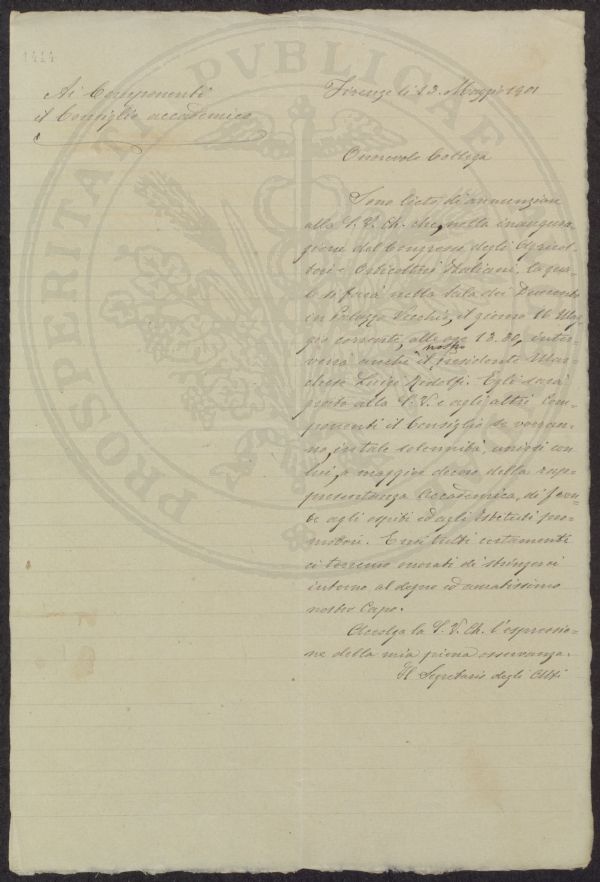 1414
Ai Componenti
il Consiglio accademico
Firenze li 13. Maggio 1901
Onorevole Collega
Sono lieto, di annunziare
alla S. V. Ch. che, nella inaugura-
zione del Congresso degli Agricol-
tori e Orticoltori Italiani, la qua-
le si farà nella Sala dei Duecento
in Palazzo Vecchio, il giorno 16 Mag-
gio corrente, alle ore 13.30, inter-
verrà anche il nostro Presidente Mar-
chese Luigi Ridolfi. Egli sarà
grato alla S. V. e agli altri Com-
ponenti il Consiglio se vorran-
no, in tale solennità, unirsi con
lui, a maggior decoro della rap-
presentanza Accademica, di fron-
te agli ospiti ed agli istituti pro-
motori. E noi tutti certamente
ci terremo onorati di stringerci
intorno al degno ed amatissimo
nostro Capo.
Accolga la S. V. Ch. l'espressio-
ne della mia piena osservanza.
Il Segretario degli Atti
PROSPERITATI PVBLICAE